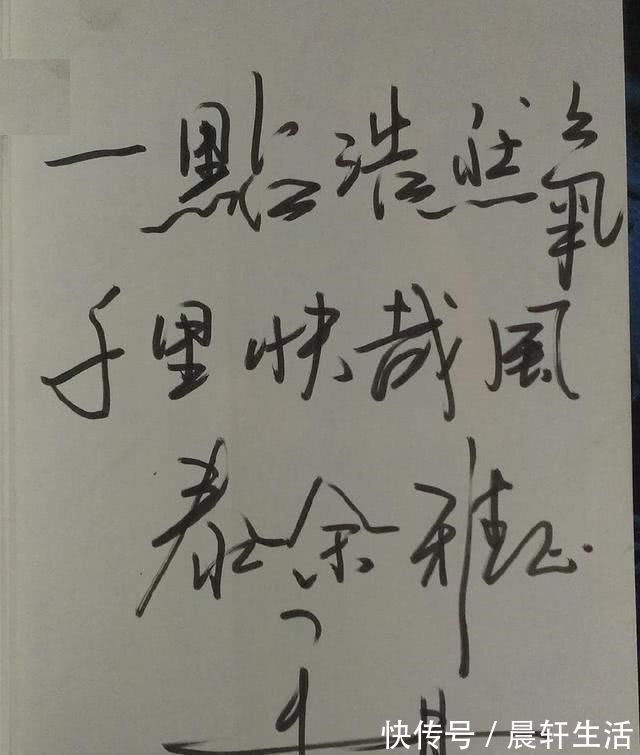 一點浩然氣
千里快哉風
春余雅正
快传号/晨轩生活